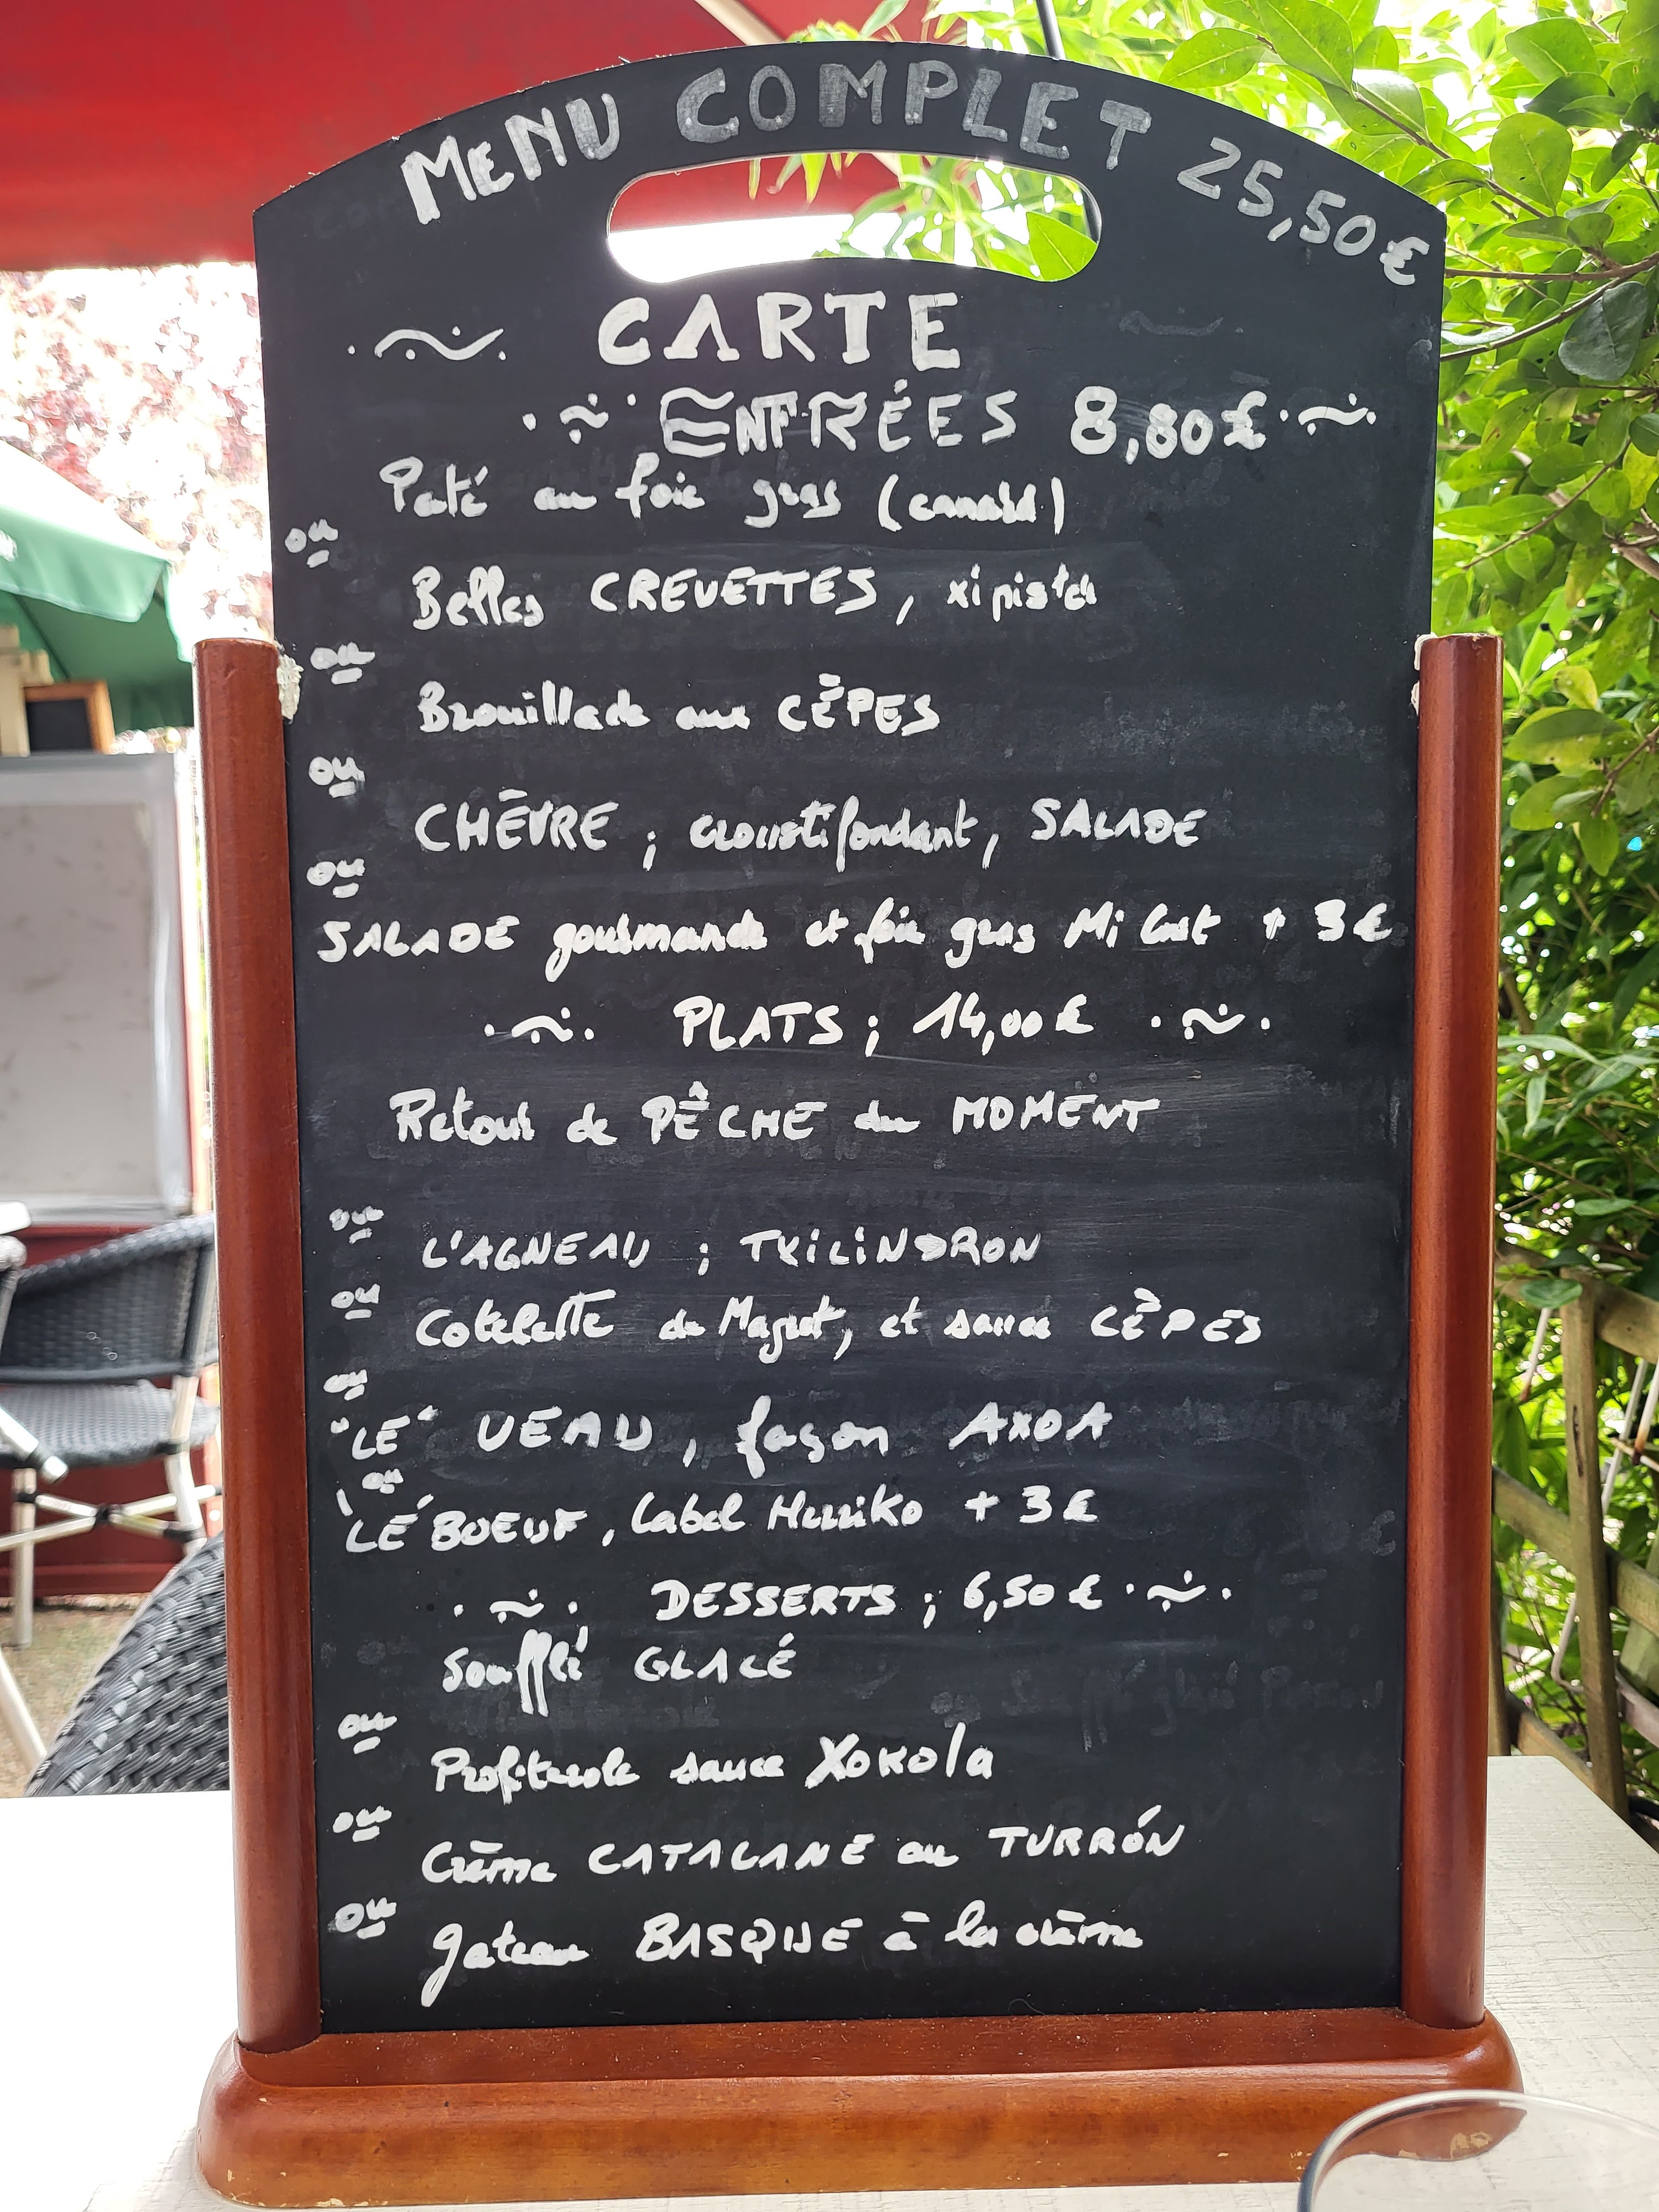 MENU COMPLET 25,50€
CARTE
ENTRÉES 8,80€
Paté au foie gras (canard)
ou
Belles CREVETTES, xipister
ou
Brouillade aux CÈPES
ou
CHÈVRE ; croustifondant, SALADE
ou
SALADE gourmande et foie gras Mi Cuit + 3€
PLATS ; 14,00€
Retour de PÊCHE du MOMENT
ou
L'AGNEAU ; TXILINDRON
ou
Cotelette de Magret, et sauce CÈPES
ou
"LE" VEAU, façon AXOA
ou
"LE" BOEUF, Label Herriko + 3€
DESSERTS ; 6,50€
Soufflé GLACÉ
ou
Profiterole sauce Xokola
ou
Crème CATALANE au TURRÓN
ou
gateau BASQUE à la crème